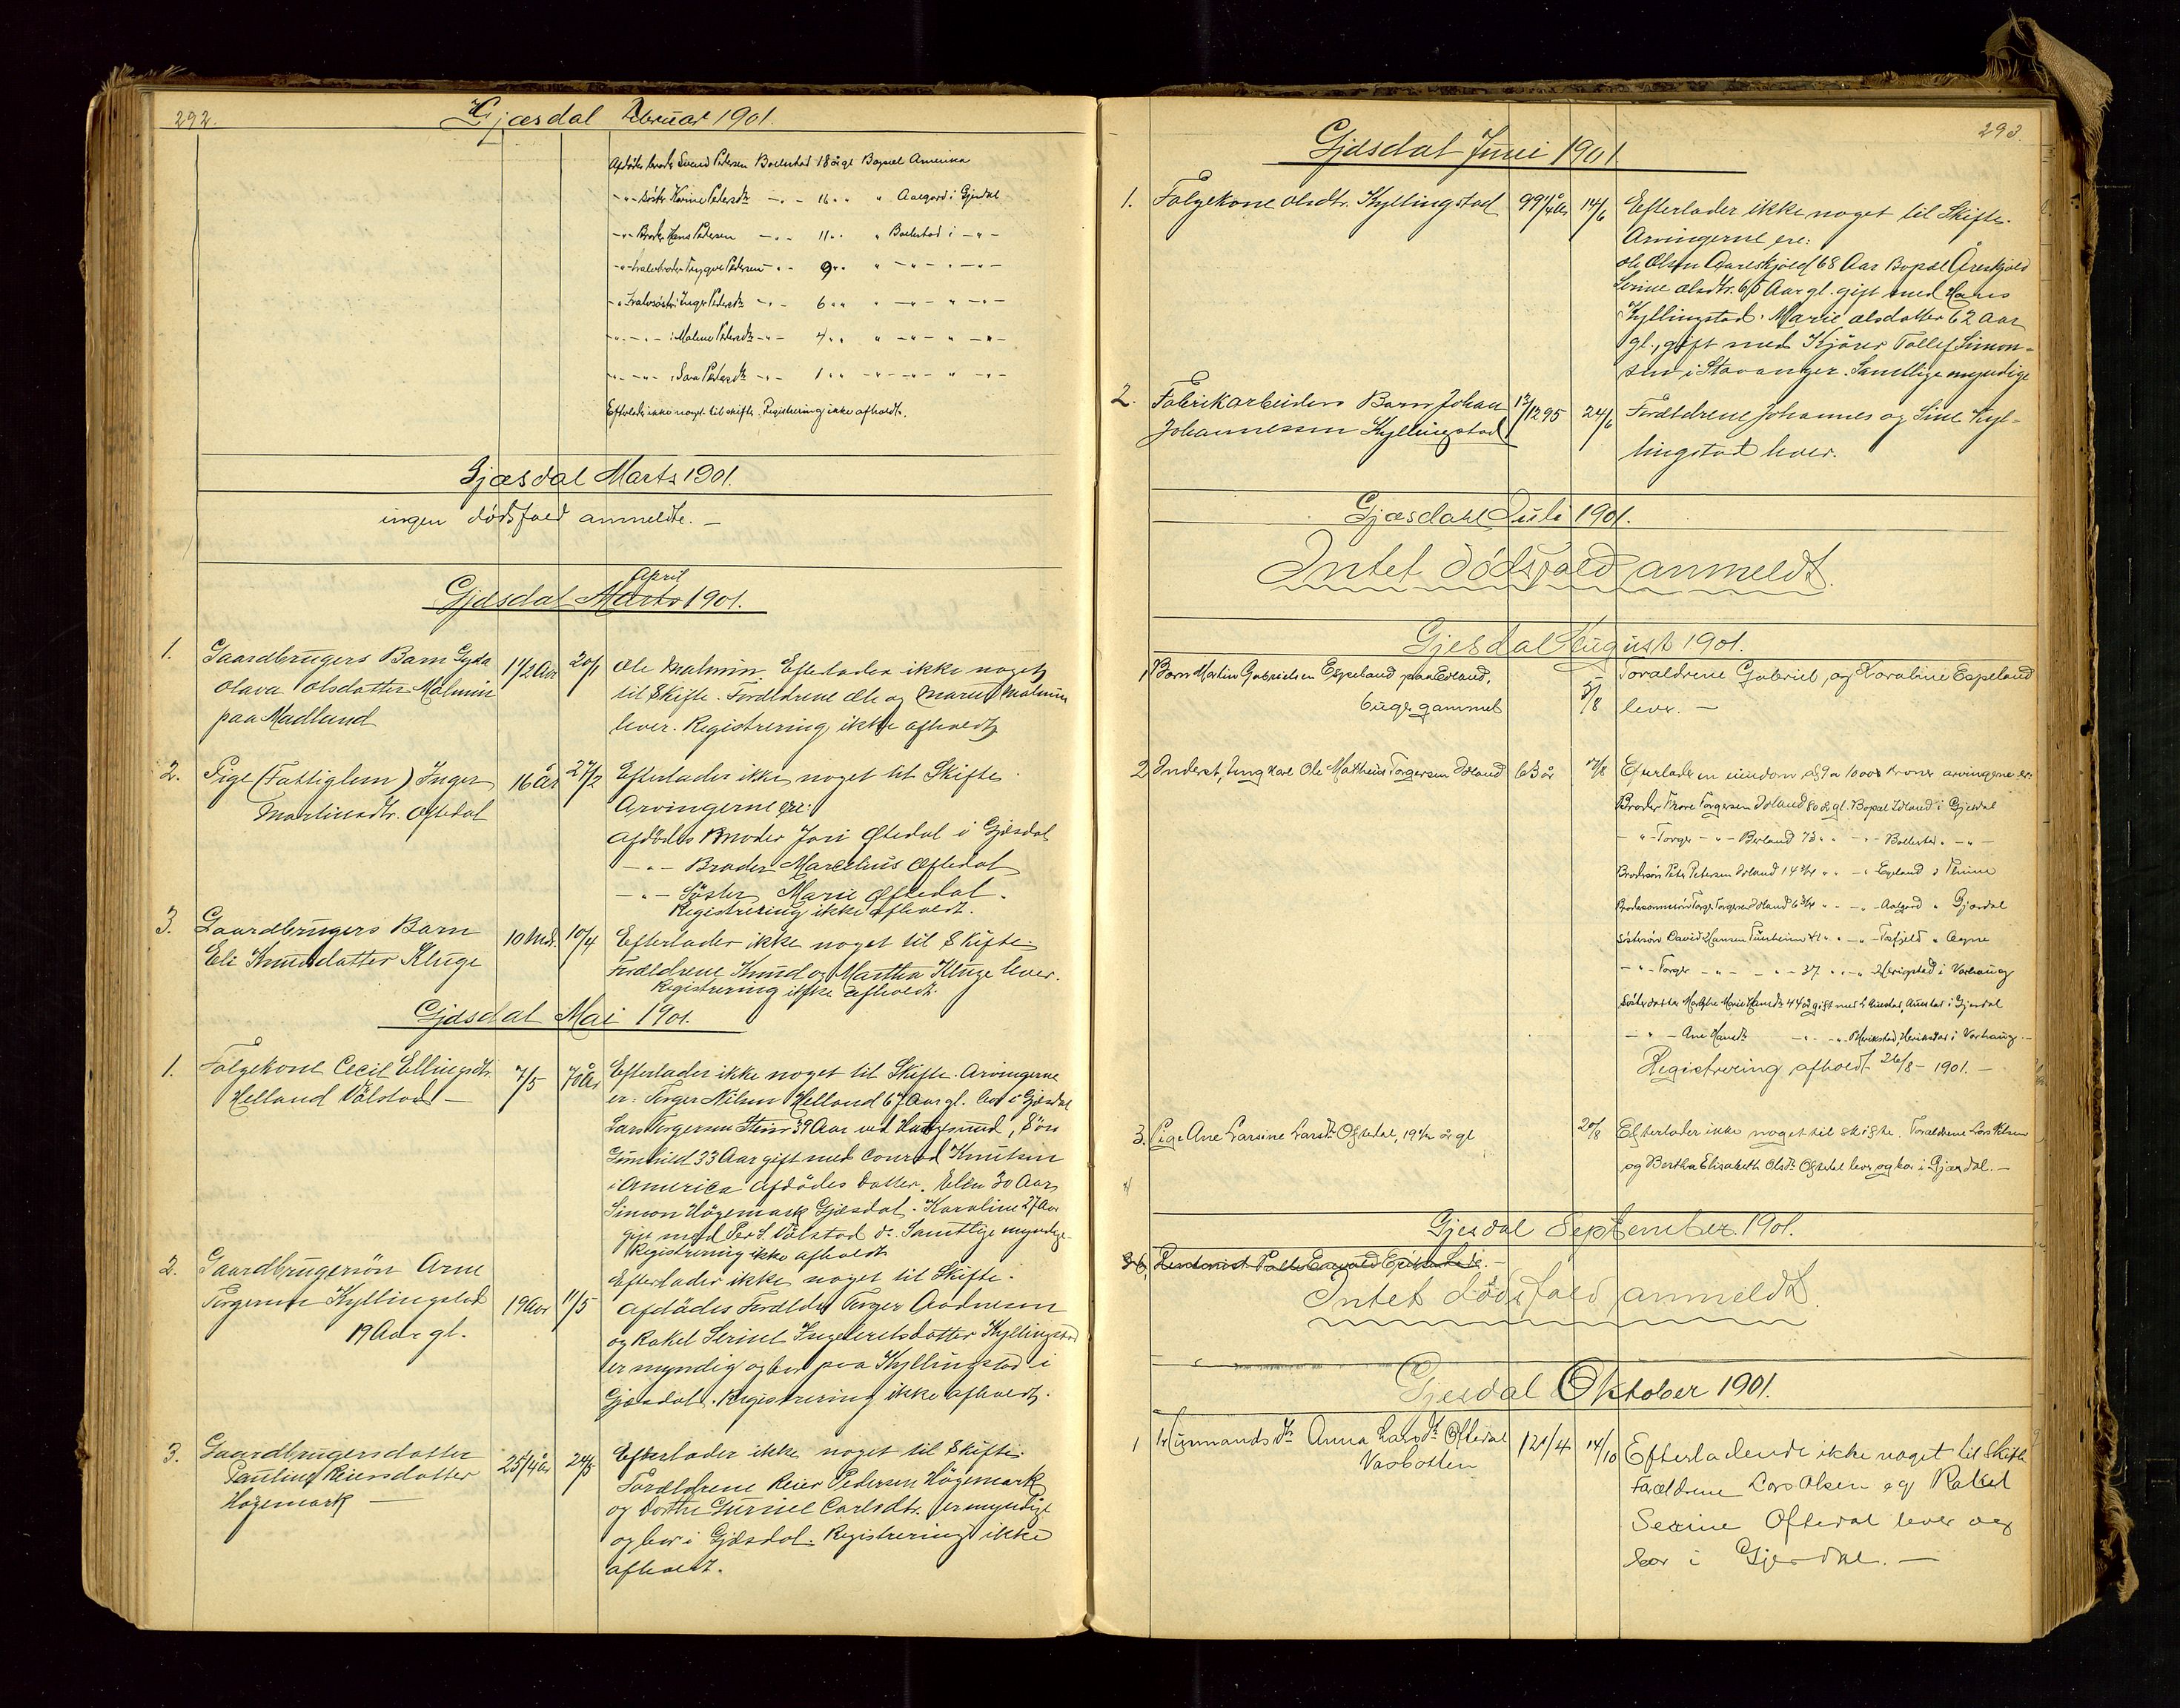 292.
Gjæsdal Februar 1901.
Afdødes broder Svend Pedersen Bollestad 18 år gl Bopæl Amerika
-"- søster Karine Pedersdtr -"- 16 " " " Aalgaard i Gjesdal
-"- Broder Hans Pedersen -"- 11 " " " Bollestad i -"-
-"- halvbroder Trygve Pedersen -"- 9 " " " -"- -"-
-"- Halvsøster Inger Pedersdtr -"- 6 " " " -"- " -"-
-"- -"- Malene Pedersdtr -"- 4 " " " -"- " -"-
-"- -"- Sara Pedersdtr -"- 1 " " -"- -"- " -"-
Efterlader ikke noget til skifte. Registrering ikke afholdt.
Gjæsdal Marts 1901.
ingen dødsfald anmeldte. -
April
Gjæsdal Marts 1901.
1. Gaardbrugers Barn Gyda 1 1/2 Aar 20/1 Ole Malmin. Efterlader ikke noget
Olava Olsdatter Malmin til Skifte. Forældrene Ole og Marie Malmin
paa Madland lever. Registrering ikke afholdt
2. Pige (Fattiglem) Inger 16 År 27/2 Efterlader ikke noget til Skifte.
Martinsdtr. Oftedal Arvingerne ere:
Afdødes Moder Jori Oftedal i Gjæsdal
-"- Broder Marcelius Oftedal
-"- Søster Marie Oftedal.
Registrering ikke afholdt.
3. Gaardbrugers Barn 10 Mdr. 10/4 Efterlader ikke noget til Skifte.
Eli Knudsdatter Kluge Forældrene Knud og Martha Kluge lever.
Registrering ikke afholdt.
Gjæsdal Mai 1901.
1. Følgekone Cecil Ellingsdtr 7/5 70 År Efterlader ikke noget til Skifte. Arvingerne
Helland Vålstad - er: Torger Nilsen Helland 67 Aar gl. bor i Gjæsdal
Lars Torgersen 39 Aar ved Haugesund, Søn
Gunhild 33 Aar gift med Conrad Knutsen
i America Afdødes Datter. Elen 30 Aar
Simon Høgemark Gjæsdal. Karoline 27 Aar
gift med Per S. Vålstad do. Samtlige myndige
Registrering ikke afholdt
2. Gaardbrugersøn Arne Efterlader ikke noget til Skifte.
Torgersen Kyllingstad 19 Aar 11/5 Afdødes Forældre Torger Aadnesen
19 Aar gl. og Rakel Serine Ingebretsdatter Kyllingstad
er myndig og bor paa Kyllingstad i
Gjæsdal. Registrering ikke afholdt.
3. Gaardbrugersdatter 25 1/4 År 24/5 Efterlader ikke noget til Skifte.
Pauline Reiersdatter Forældrene Reier Pedersen Høgemark
Høgemark - og Dorthe Gurine Carlsdtr. er myndige
og bor i Gjæsdal. Registrering ikke
afholdt.
293
Gjæsdal Juni 1901.
1. Følgekone Olsdtr. Kyllingstad 99 1/4 År 14/6 Efterlader ikke noget til Skifte.
Arvingerne ere:
Ole Olsen Aareskjold 68 Aar Bopæl Åreskjold
Serine Olsdtr. 65 Aar gl. gift med Hans
Kyllingstad. Marie Olsdatter 62 Aar
gl., gift med Kjører Tollef Simon-
sen i Stavanger. Samtlige myndige
2. Fabrikarbeiders Barn Johan 13/12 95 24/6 Forældrene Johannes og Sine Kyl-
Johannessen Kyllingstad lingstad lever.
Gjæsdahl Juli 1901.
Intet dødsfald anmeldt.
Gjesdal August 1901.
1 Barn Martin Gabrielsen Espeland paa Edland, 5/8 Foraldrene Gabriel og Karoline Espeland
6 uger gammel lever. -
2 Inderst, Ungkarl Ole Matheus Torgersen Idland 63 år 17/8 Efterlader en eiendom af ca 1000 Kroner arvingene er:
Broder Tore Torgersen Idland 80 år gl. Bopæl Idland i Gjesdal
-"- Torger -"- Berland 73 " " -"- Bollestad " -"-
Brodersøn Peter Petersen Idland 14 3/4 " " -"- Egeland i Time
Torger Torgersen Idland 6 3/4 " " -"- Aalgaard " Gjesdal
Søstersøn David Hansen 41 " " -"- Tafjeld " Ogne
-"- Torger -"- -"- 37 " " -"- Herigstad i Varhaug
Søsterdatter Marthe Marie Hansdtr 44 år gift med Auestad i Gjesdal
-"- Ane Hansdtr -"- -"- i Varhaug -
Registrering afholdt 26/8 - 1901. -
3. Pige Ane Larsine Larsdtr Oftedal, 19 1/2 år gl 20/8 Efterlader ikke noget til skifte. Foraldrene Lars Nilsen
og Bertha Elisabeth Olsdtr Oftedal lever og bor i Gjesdal. -
Gjesdal September 1901.
Intet dødsfald anmeldt.
Gjesdal Oktober 1901.
1 Husmandsdtr Anna Larsdtr Oftedal 12 1/4 14/10 Efterladende ikke noget til Skifte
Vasbotten Forældrene Lars Olsen og Rakel
Serine Oftedal lever og
bor i Gjesdal. -